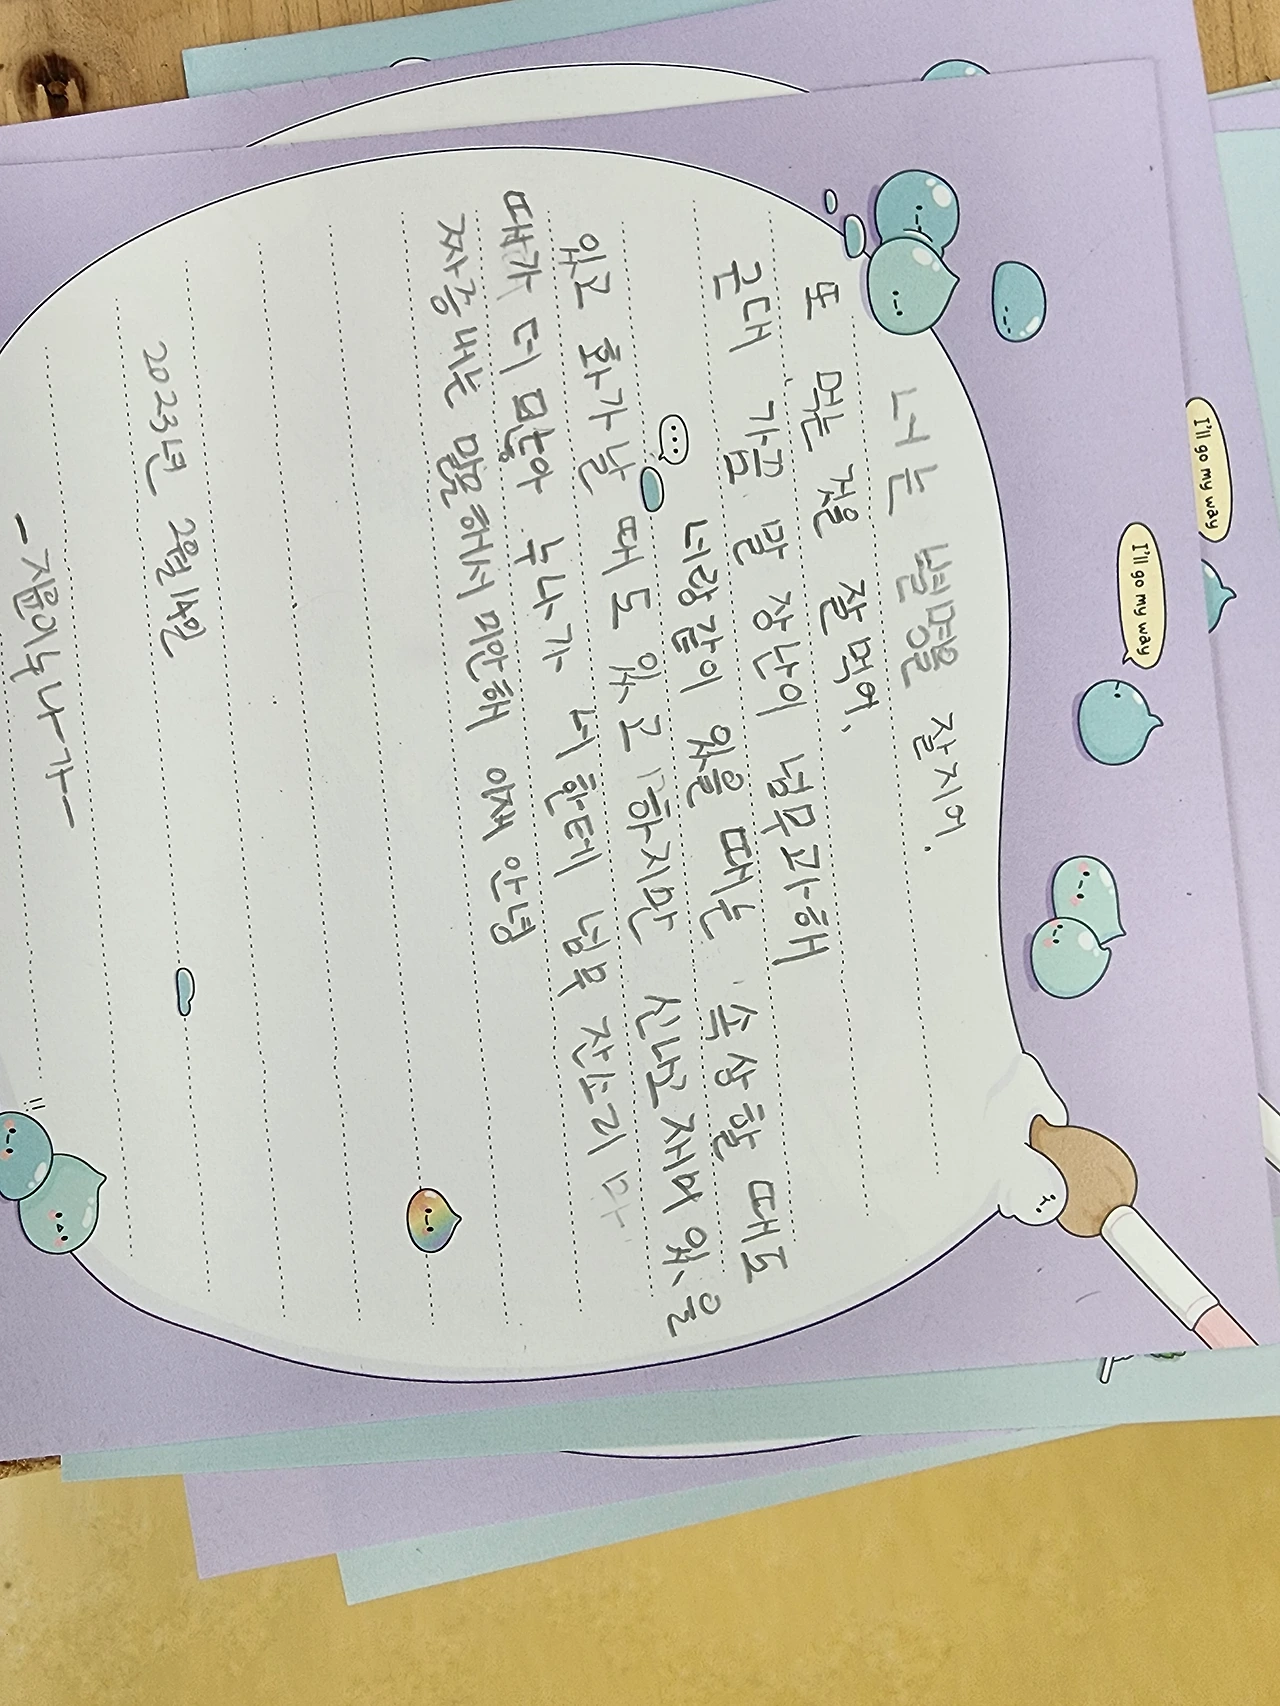 너는 별명을 잘지어.
또 먹는 것을 잘먹어.
근대 가끔 말 장난이 넘무과해
너랑같이 있을 때는 속상할 때도
있고 화가날 때도 있고 하지만 신나고재미있을
때가 더 많아 누나가 너한테 넘무 잔소리
짜증내는 말을해서 미안해 안녕
2023년 2월 14일
-지윤이누나가-
I'll go my way
I'll go my way